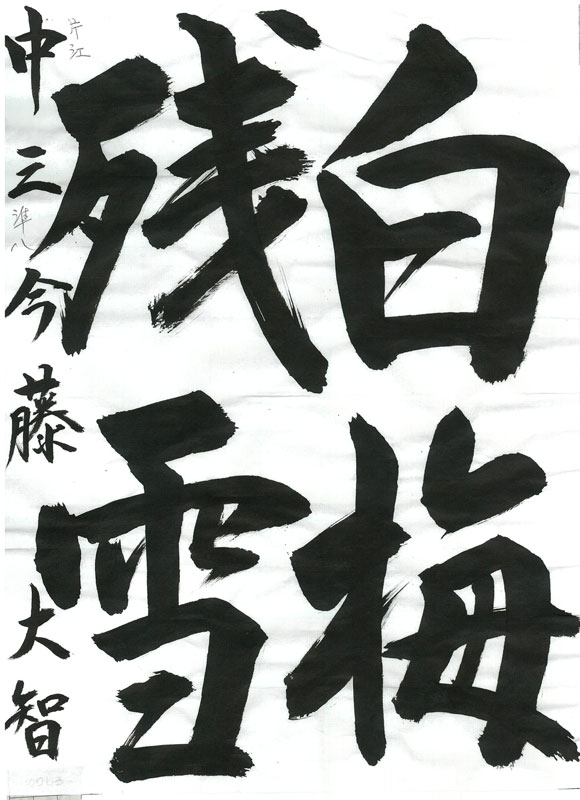 白梅
残雪
中三 今藤大智
片江
準八